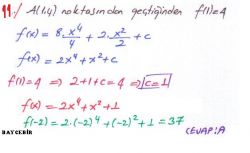 11-/ A(1,4) noktasından geçtiğinden f(1)=4
f(x) = 8.x⁴/4 + 2.x²/2 + c
f(x) = 2x⁴ + x² + c
f(1)=4 ⇒ 2+1+c=4 ⇒ c=1
f(x) = 2x⁴ + x² + 1
f(-2) = 2.(-2)⁴ + (-2)² + 1 = 37
CEVAP:A
BAYCEBİR